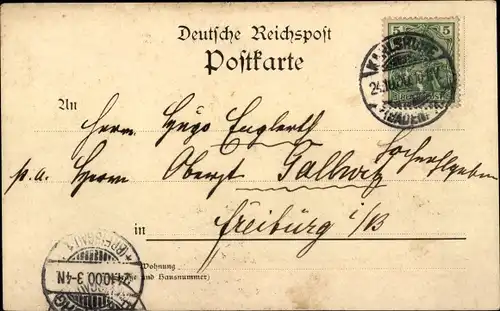 Deutsche Reichspost
Postkarte
5 5
KARLSRUHE
24.10.00
(BADEN)
An
Herrn Hugo Englerth
p.a. Herrn Oberzt Gallwitz Hochwohlgeboren
in Freiburg i/B
Wohnung
(Straße und Hausnummer)
(BREISGAU) 1
24.10.00. 3-4N